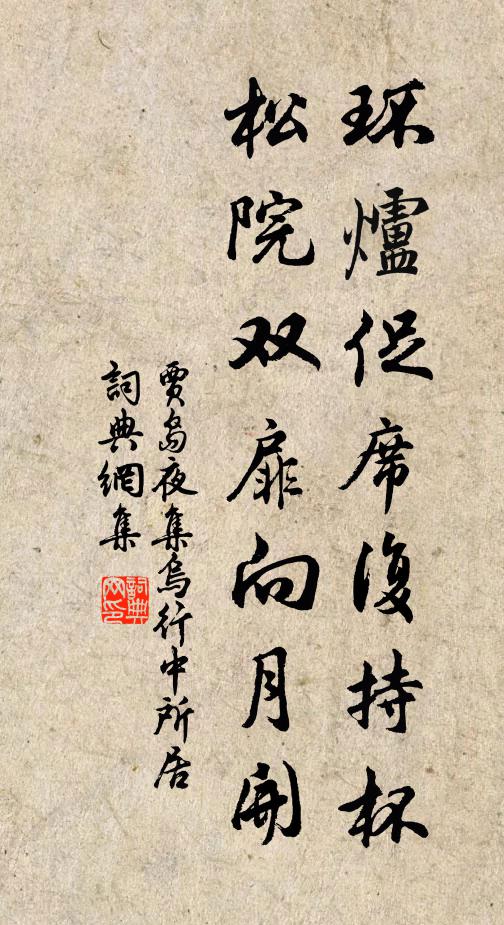 环爐促席復持杯
松院双扉向月開
賈島夜集烏行中所居
詞典網集
詞典
网印